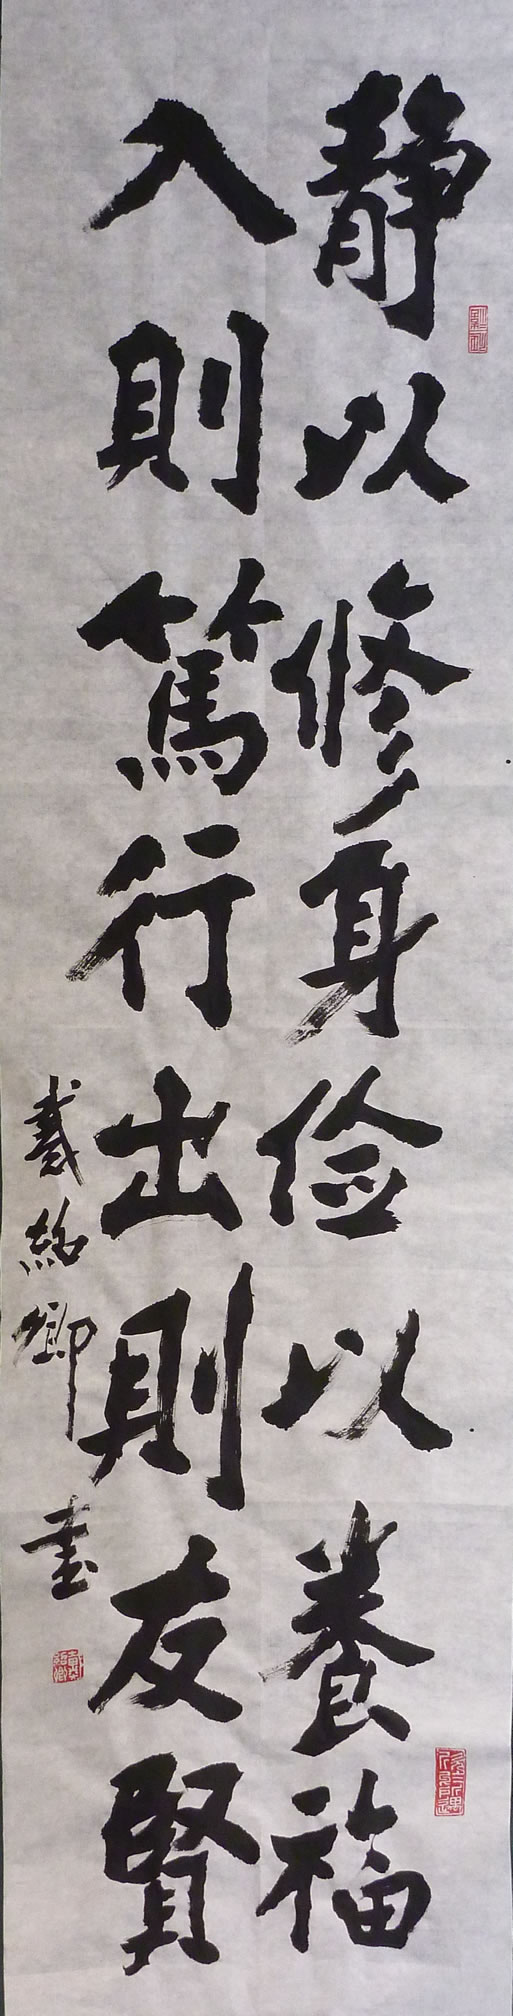 静以修身俭以養福
入則篤行出則友賢
戴紹卿書